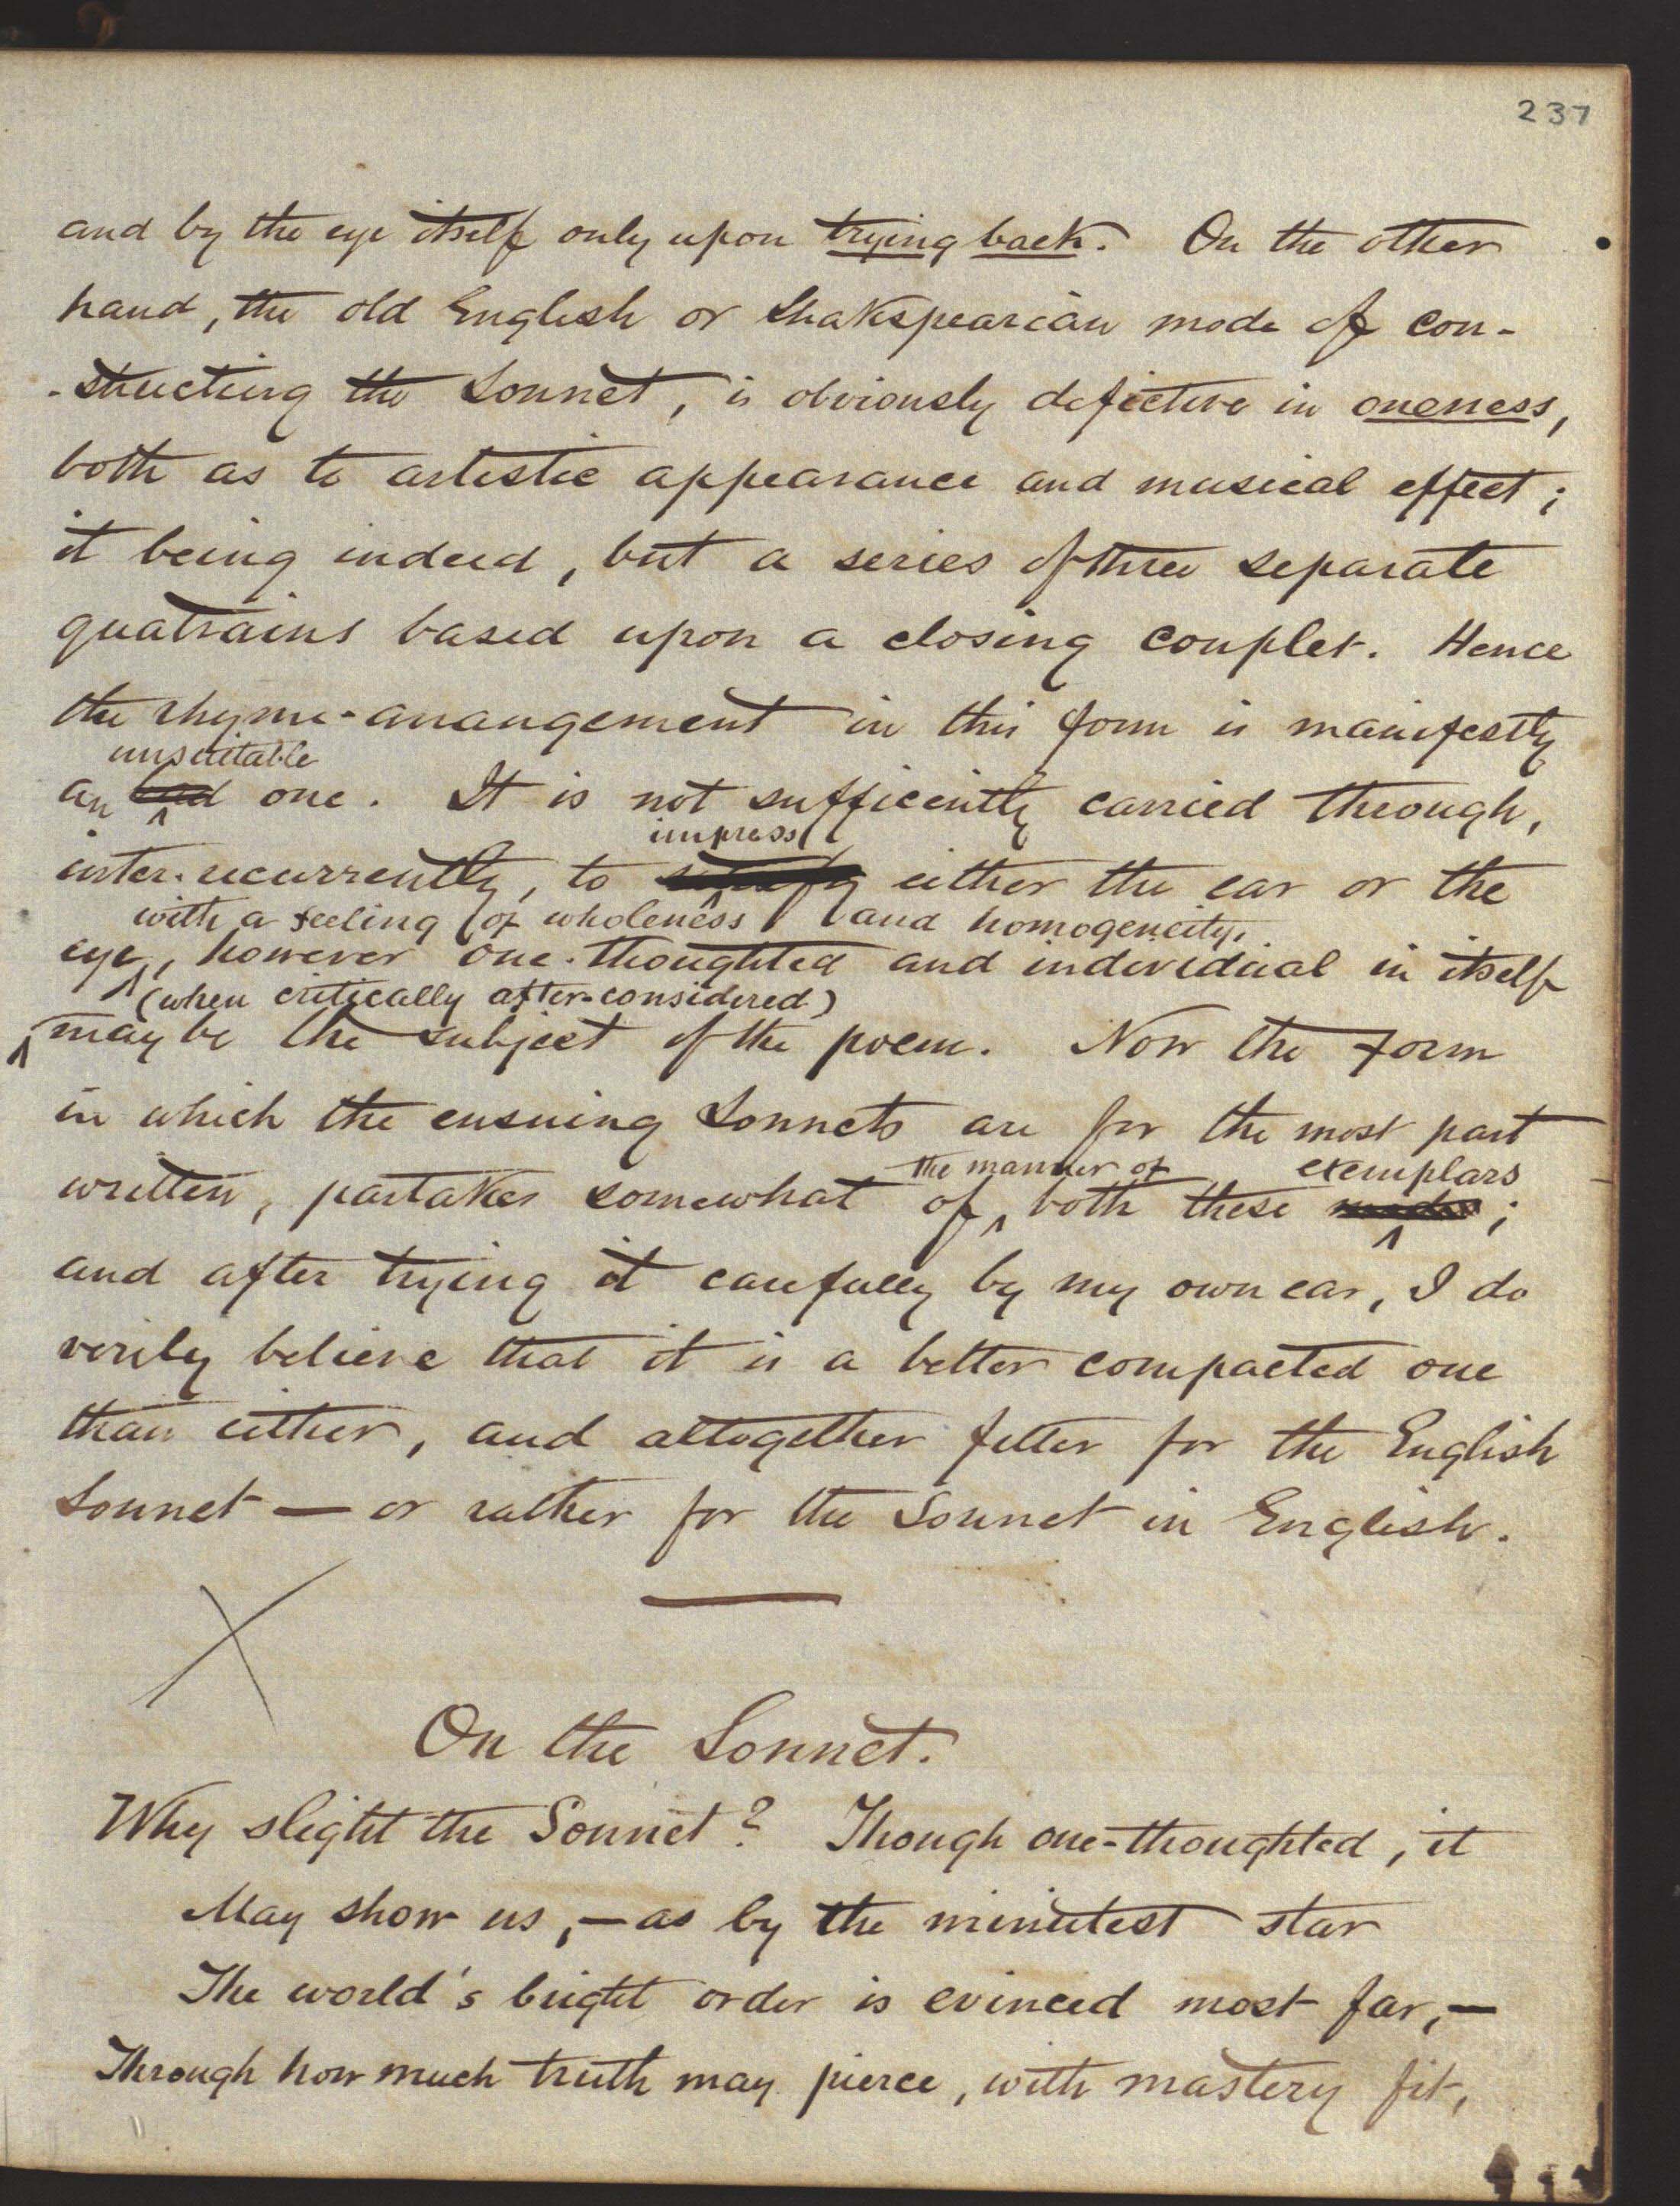 237
and by the eye itself only upon trying back. On the other
hand, the old English or Shakspearian mode of con-
-structing the Sonnet, is obviously defective in oneness,
both as to artistic appearance and musical effect;
it being indeed, but a series of three separate
quatrains based upon a closing couplet. Hence
the rhyme-arrangement in this form is manifestly
unsuitable
an bad one. It is not sufficiently carried through,
impress
inter-recurrently, to either the ear or the
with a feeling of wholeness and homogeneity,
eye, however one-thoughted and individual in itself
(when critically after-considered)
may be the subject of the poem. Now the form
in which the ensuing Sonnets are for the most part
the manner of exemplars
written, partakes somewhat of both these ;
and after trying it carefully by my own ear, I do
verily believe that it is a better compacted one
than either, and altogether fitter for the English
Sonnet — or rather for the Sonnet in English.
On the Sonnet.
Why slight the Sonnet? Though one-thoughted, it
May show us, — as by the minutest star
The world's bright order is evinced most far, —
Through how much truth may pierce, with mastery fit,